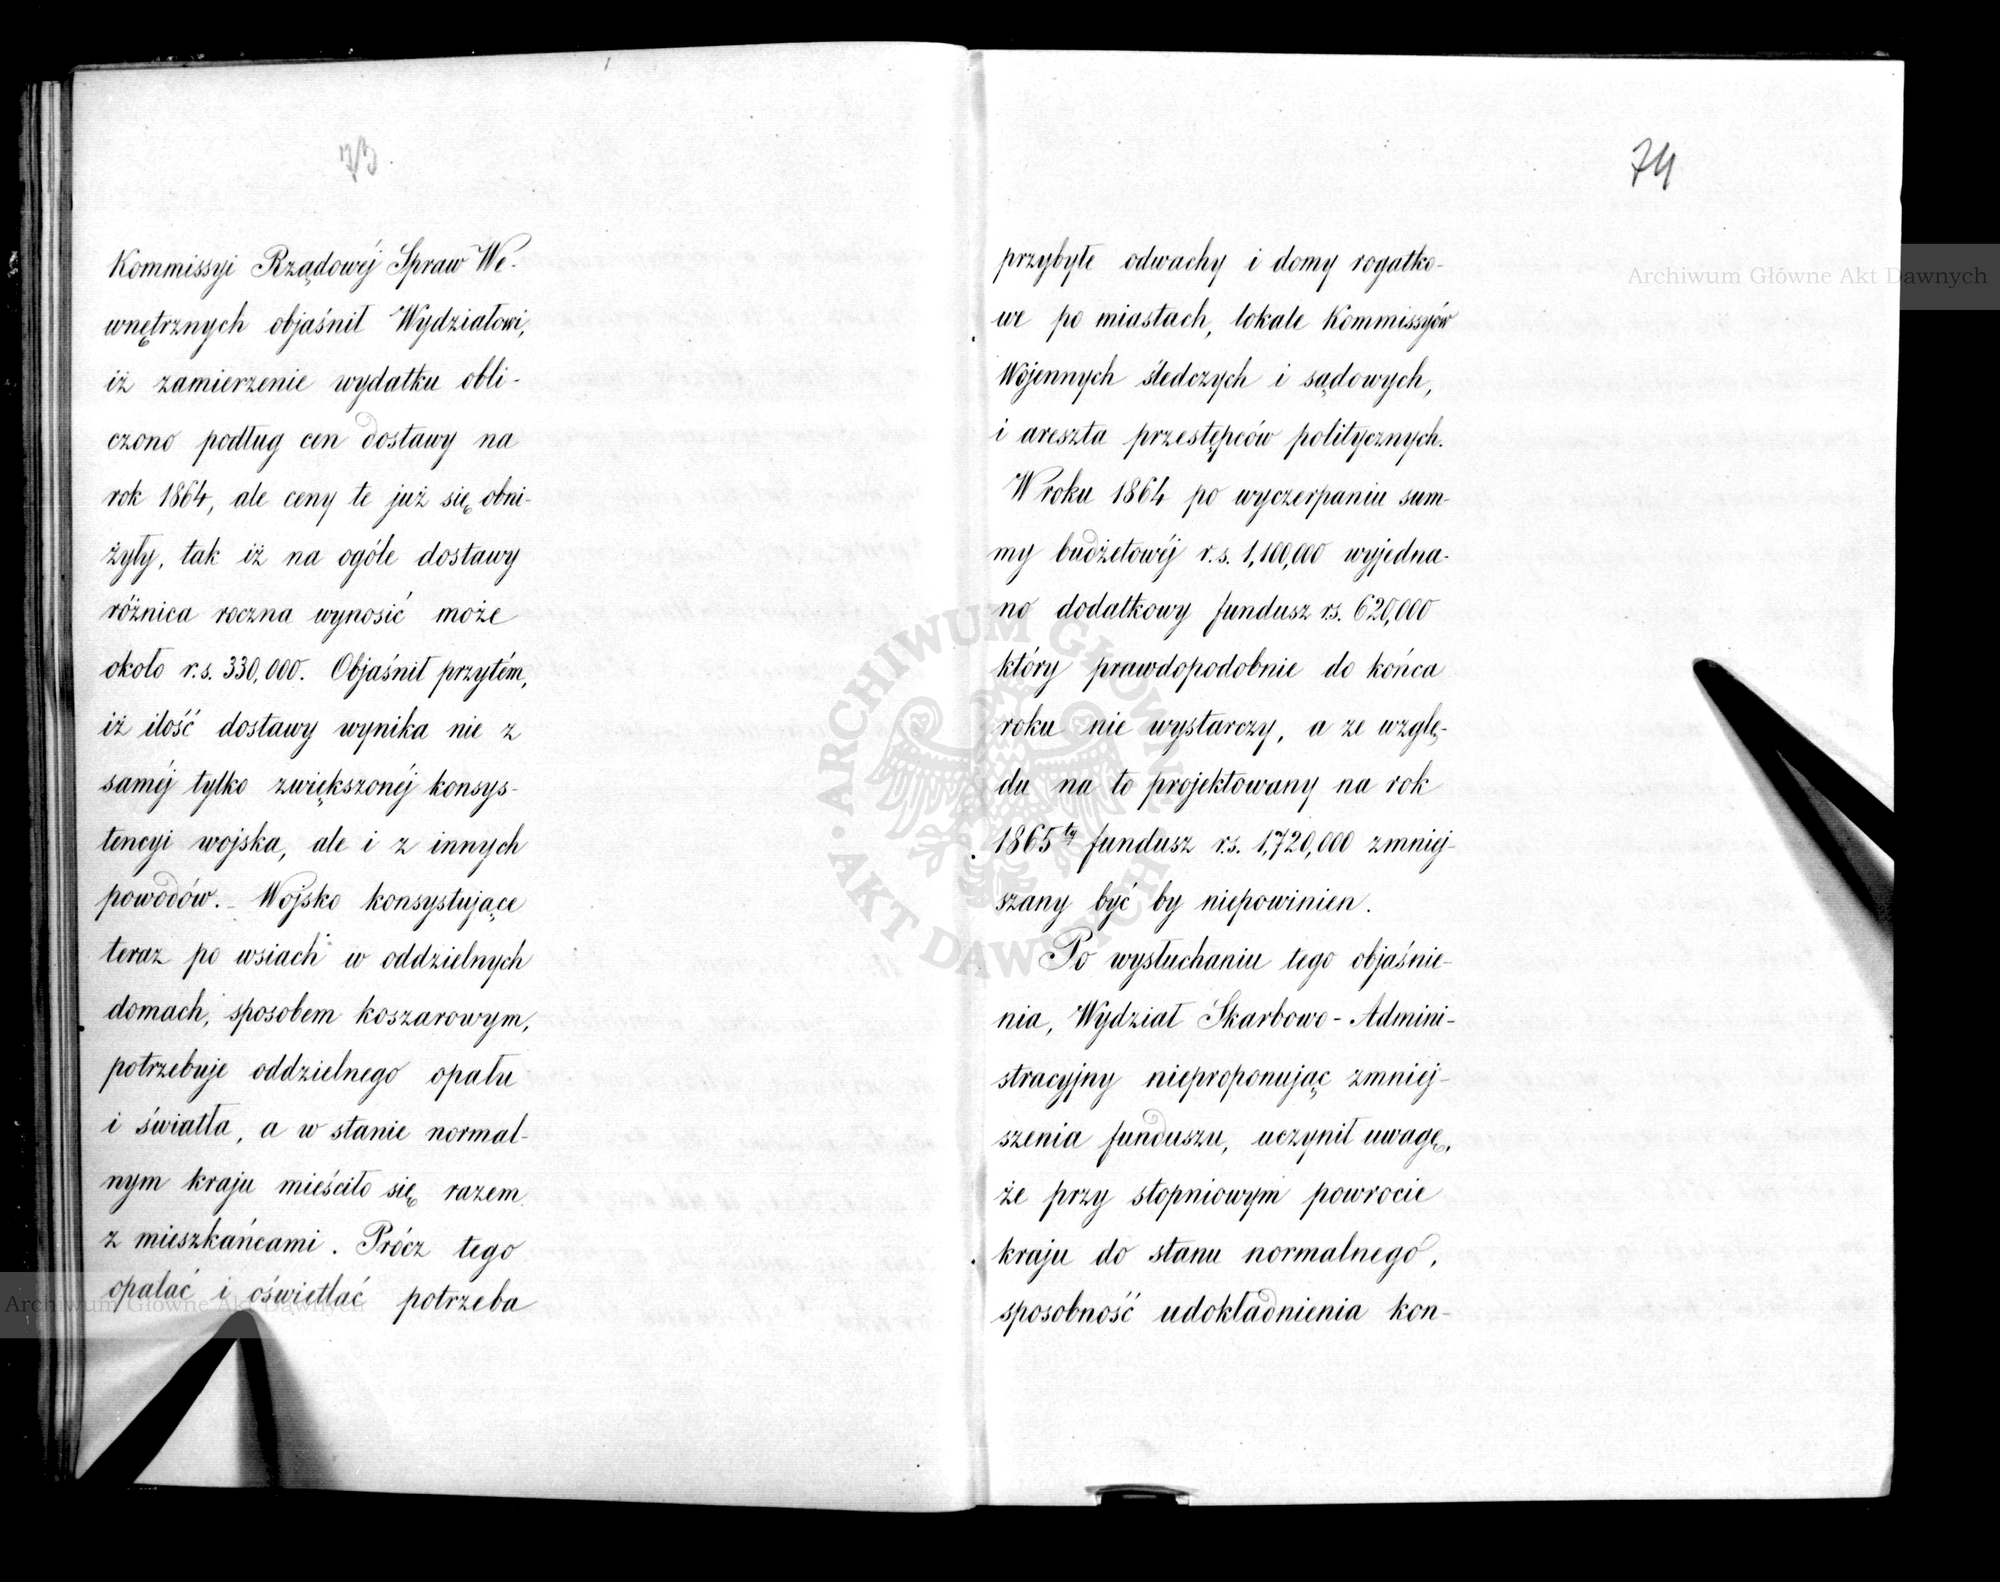 73
Kommissyi Rządowéj Spraw We-
wnętrznych objaśnił Wydziałowi,
iż zamierzenie wydatku obli-
czono podług cen dostawy na
rok 1864, ale ceny te już się obni-
żyły, tak iż na ogóle dostawy
różnica roczna wynosić może
około r.s. 330,000. Objaśnił przytém,
iż ilość dostawy wynika nie z
saméj tylko zwiększonéj konsys-
tencyi wojska, ale i z innych
powodów. Wojsko konsystujące
teraz po wsiach w oddzielnych
domach, sposobem koszarowym,
potrzebuje oddzielnego opału
i światła, a w stanie normal-
nym kraju mieściło się razem
z mieszkańcami. Prócz tego
opalać i oświetlać potrzeba
74
przybyłe odwachy i domy rogatko-
we po miastach, lokale Kommissyów
Wojennych śledczych i sądowych,
i areszta przestępców politycznych.
W roku 1864 po wyczerpaniu sum-
my budżetowéj r.s. 1,100,000 wyjedna-
no dodatkowy fundusz rs. 620,000
który prawdopodobnie do końca
roku nie wystarczy, a ze wzglę-
du na to projektowany na rok
1865ty fundusz r.s. 1,720,000 zmniej-
szany być by niepowinien.
Po wysłuchaniu tego objaśnie-
nia, Wydział Skarbowo-Admini-
stracyjny nieproponując zmniej-
szenia funduszu, uczynił uwagę,
że przy stopniowym powrocie
kraju do stanu normalnego,
sposobność udokładnienia kon-
Archiwum Główne Akt Dawnych
Archiwum Główne Akt Dawnych
ARCHIWUM GŁÓWNE
AKT DAWNYCH